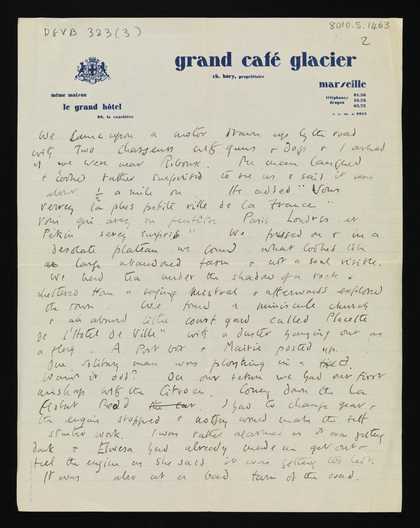 DGVB 323(3)
8010.5.1463
2
grand café glacier
ch. bory, propriétaire
marseille
même maison
téléphones
dragon
le grand hôtel
We came upon a motor drawn up by the road
with two chasseurs with guns & Dogs & I asked
if we were near Riboux. The man laughed
& looked rather surprised to see us & said it was
about ½ a mile on. He added "Vous
verrez la plus petite ville de la France"
Vous qui avez vu peut-être Paris Londres et
Pekin serez surpris" We pressed on & on a
desolate plateau we found what looked like
a large abandoned farm & not a soul visible
We had tea under the shadow of a rock &
sheltered from a raging mistral & afterwards explored
the town. We found a miniscule church
& an absurd little court yard called Placette
de L'Hotel de Ville" with a duster hanging out as
a flag. A Post box & Mairie posted up.
One solitary man was ploughing in a field.
Wasn't it odd? On our return we had our first
mishap with the Citroen. Coming down the
Road I had to change gear &
the engine stopped & nothing would make the self
starter work. I was rather alarmed as it was getting
dark & Elvira had already made me get out &
feel the engine as she said it was getting too hot.
It was also at a bad turn of the road.